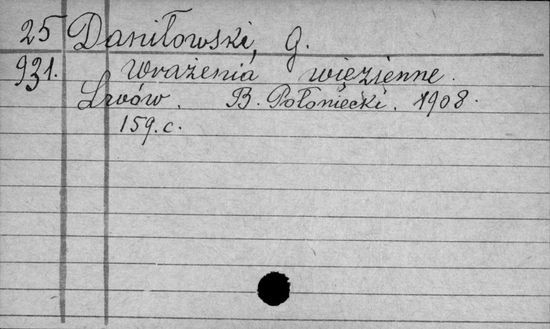 25 Daniłowski, G.
931. Wrażenia więzienne.
Lwów. B. Połoniecki. 1908.
159.c.